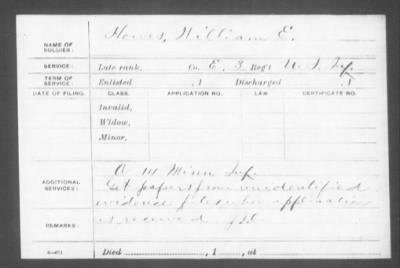 Howes, William E.
NAME OF SOLDIER:
SERVICE: Late rank, Co. E, 3 Reg't U. S. Inf.
TERM OF SERVICE: Enlisted , 1 Discharged , 1
DATE OF FILING. CLASS. APPLICATION NO. LAW. CERTIFICATE NO.
Invalid,
Widow,
Minor,
ADDITIONAL SERVICES: A 14 Minn Inf.
Get papers from unidentified
evidence files when application
REMARKS: is received.
Died , 1 , at